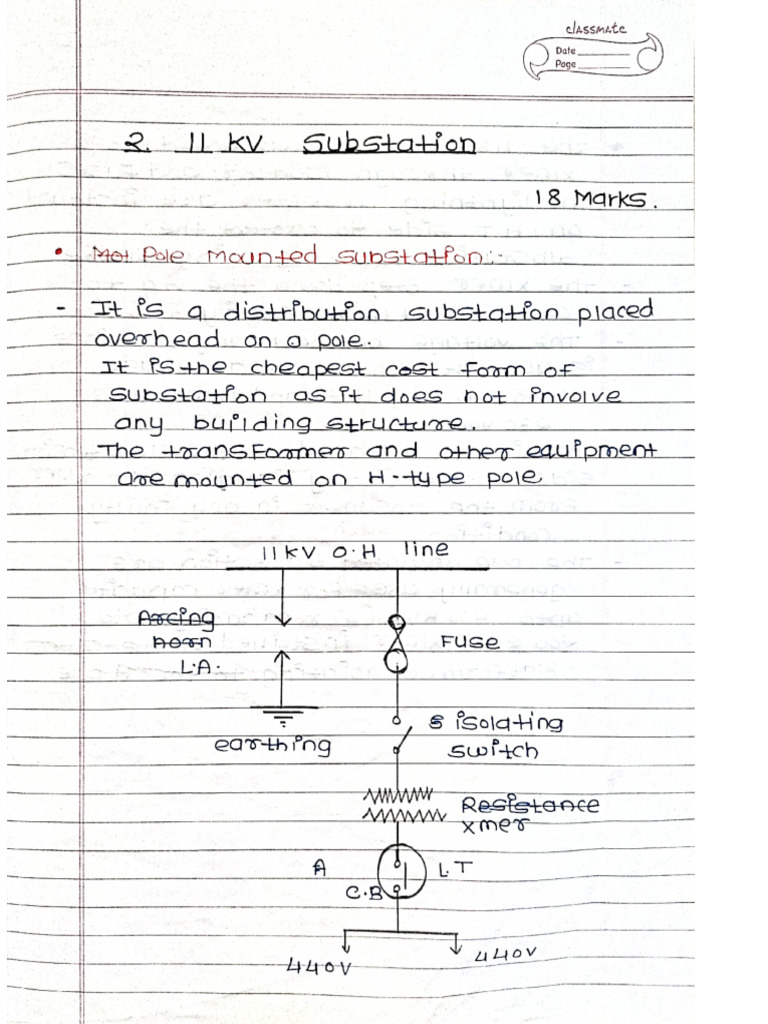 classmate
Date
Page
2. 11 KV Substation
18 Marks.
• Mot Pole mounted substation:-
- It is a distribution substation placed
overhead on a pole.
It is the cheapest cost form of
substation as it does not involve
any building structure.
The transformer and other equipment
are mounted on H-type pole
11KV O.H line
Arcing
horn
L.A.
Fuse
earthing
s isolating
switch
Resistance
xmer
A
L.T
C.B
440V
440V